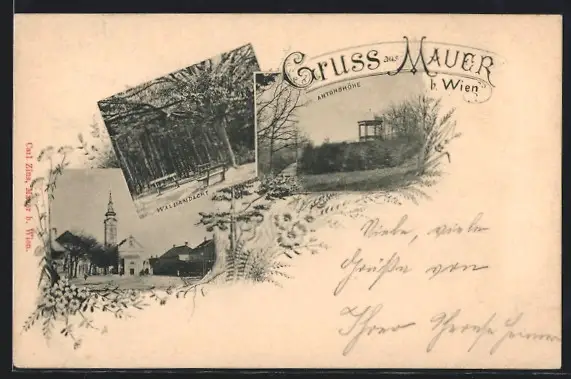 Gruss aus Mauer
b. Wien
ANTONSHÖHE
WALDANDACHT
Carl Zins, Mauer b. Wien.
Viele, viele
Grüße von
Ihrer Therese